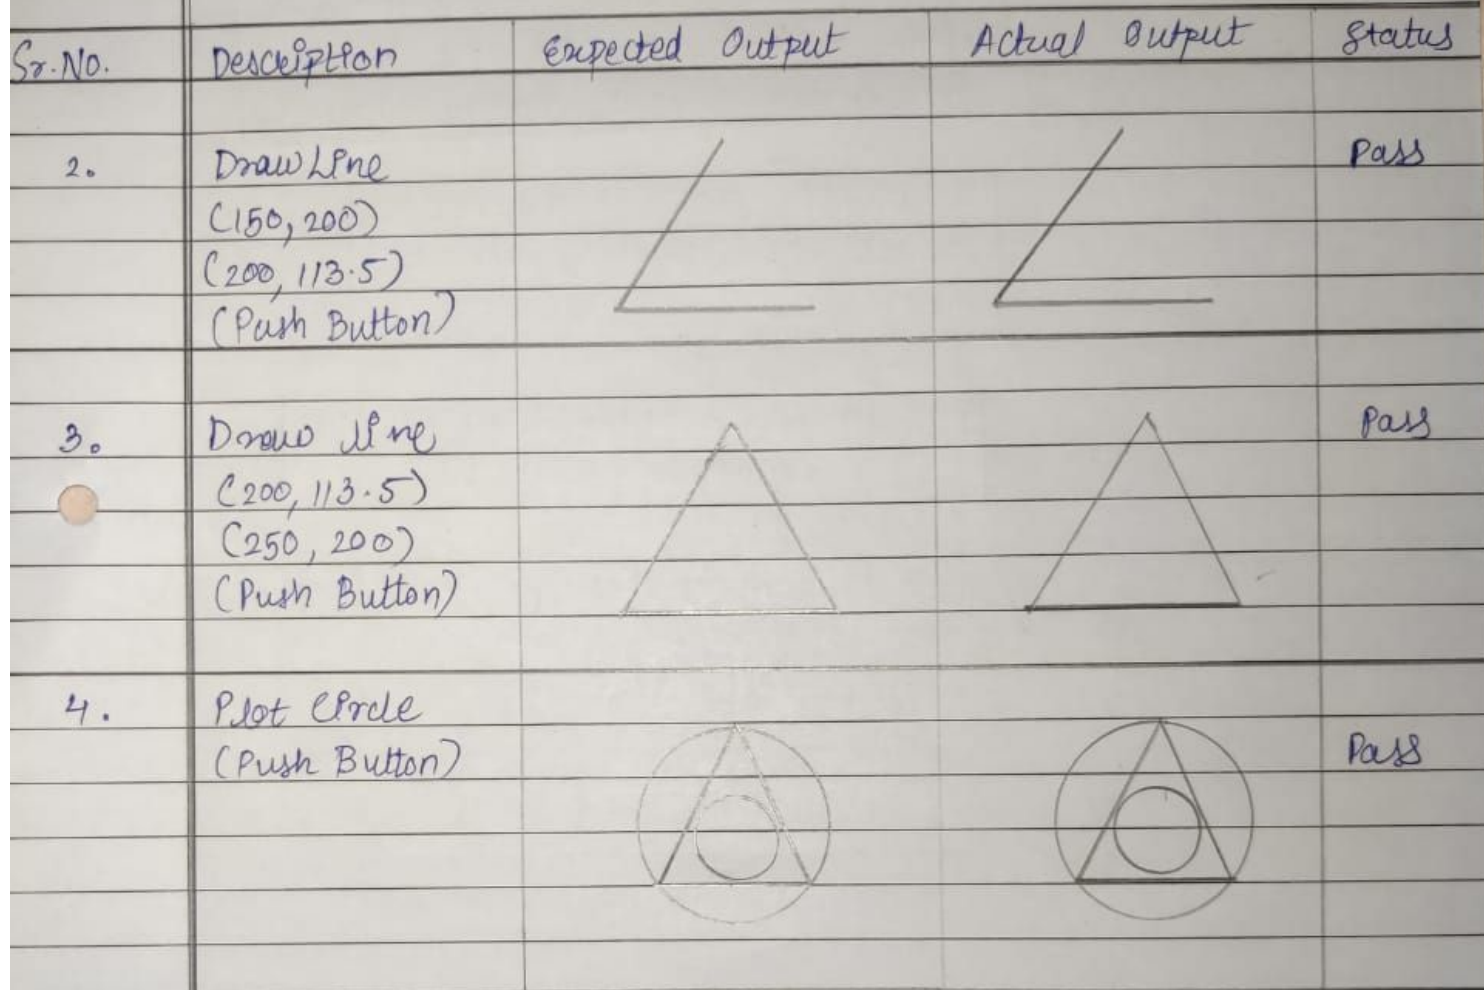 Sr.No. Description Expected Output Actual Output Status
2. Draw Line Pass
(150, 200)
(200, 113.5)
(Push Button)
3. Draw line Pass
(200, 113.5)
(250, 200)
(Push Button)
4. Plot Circle
(Push Button) Pass